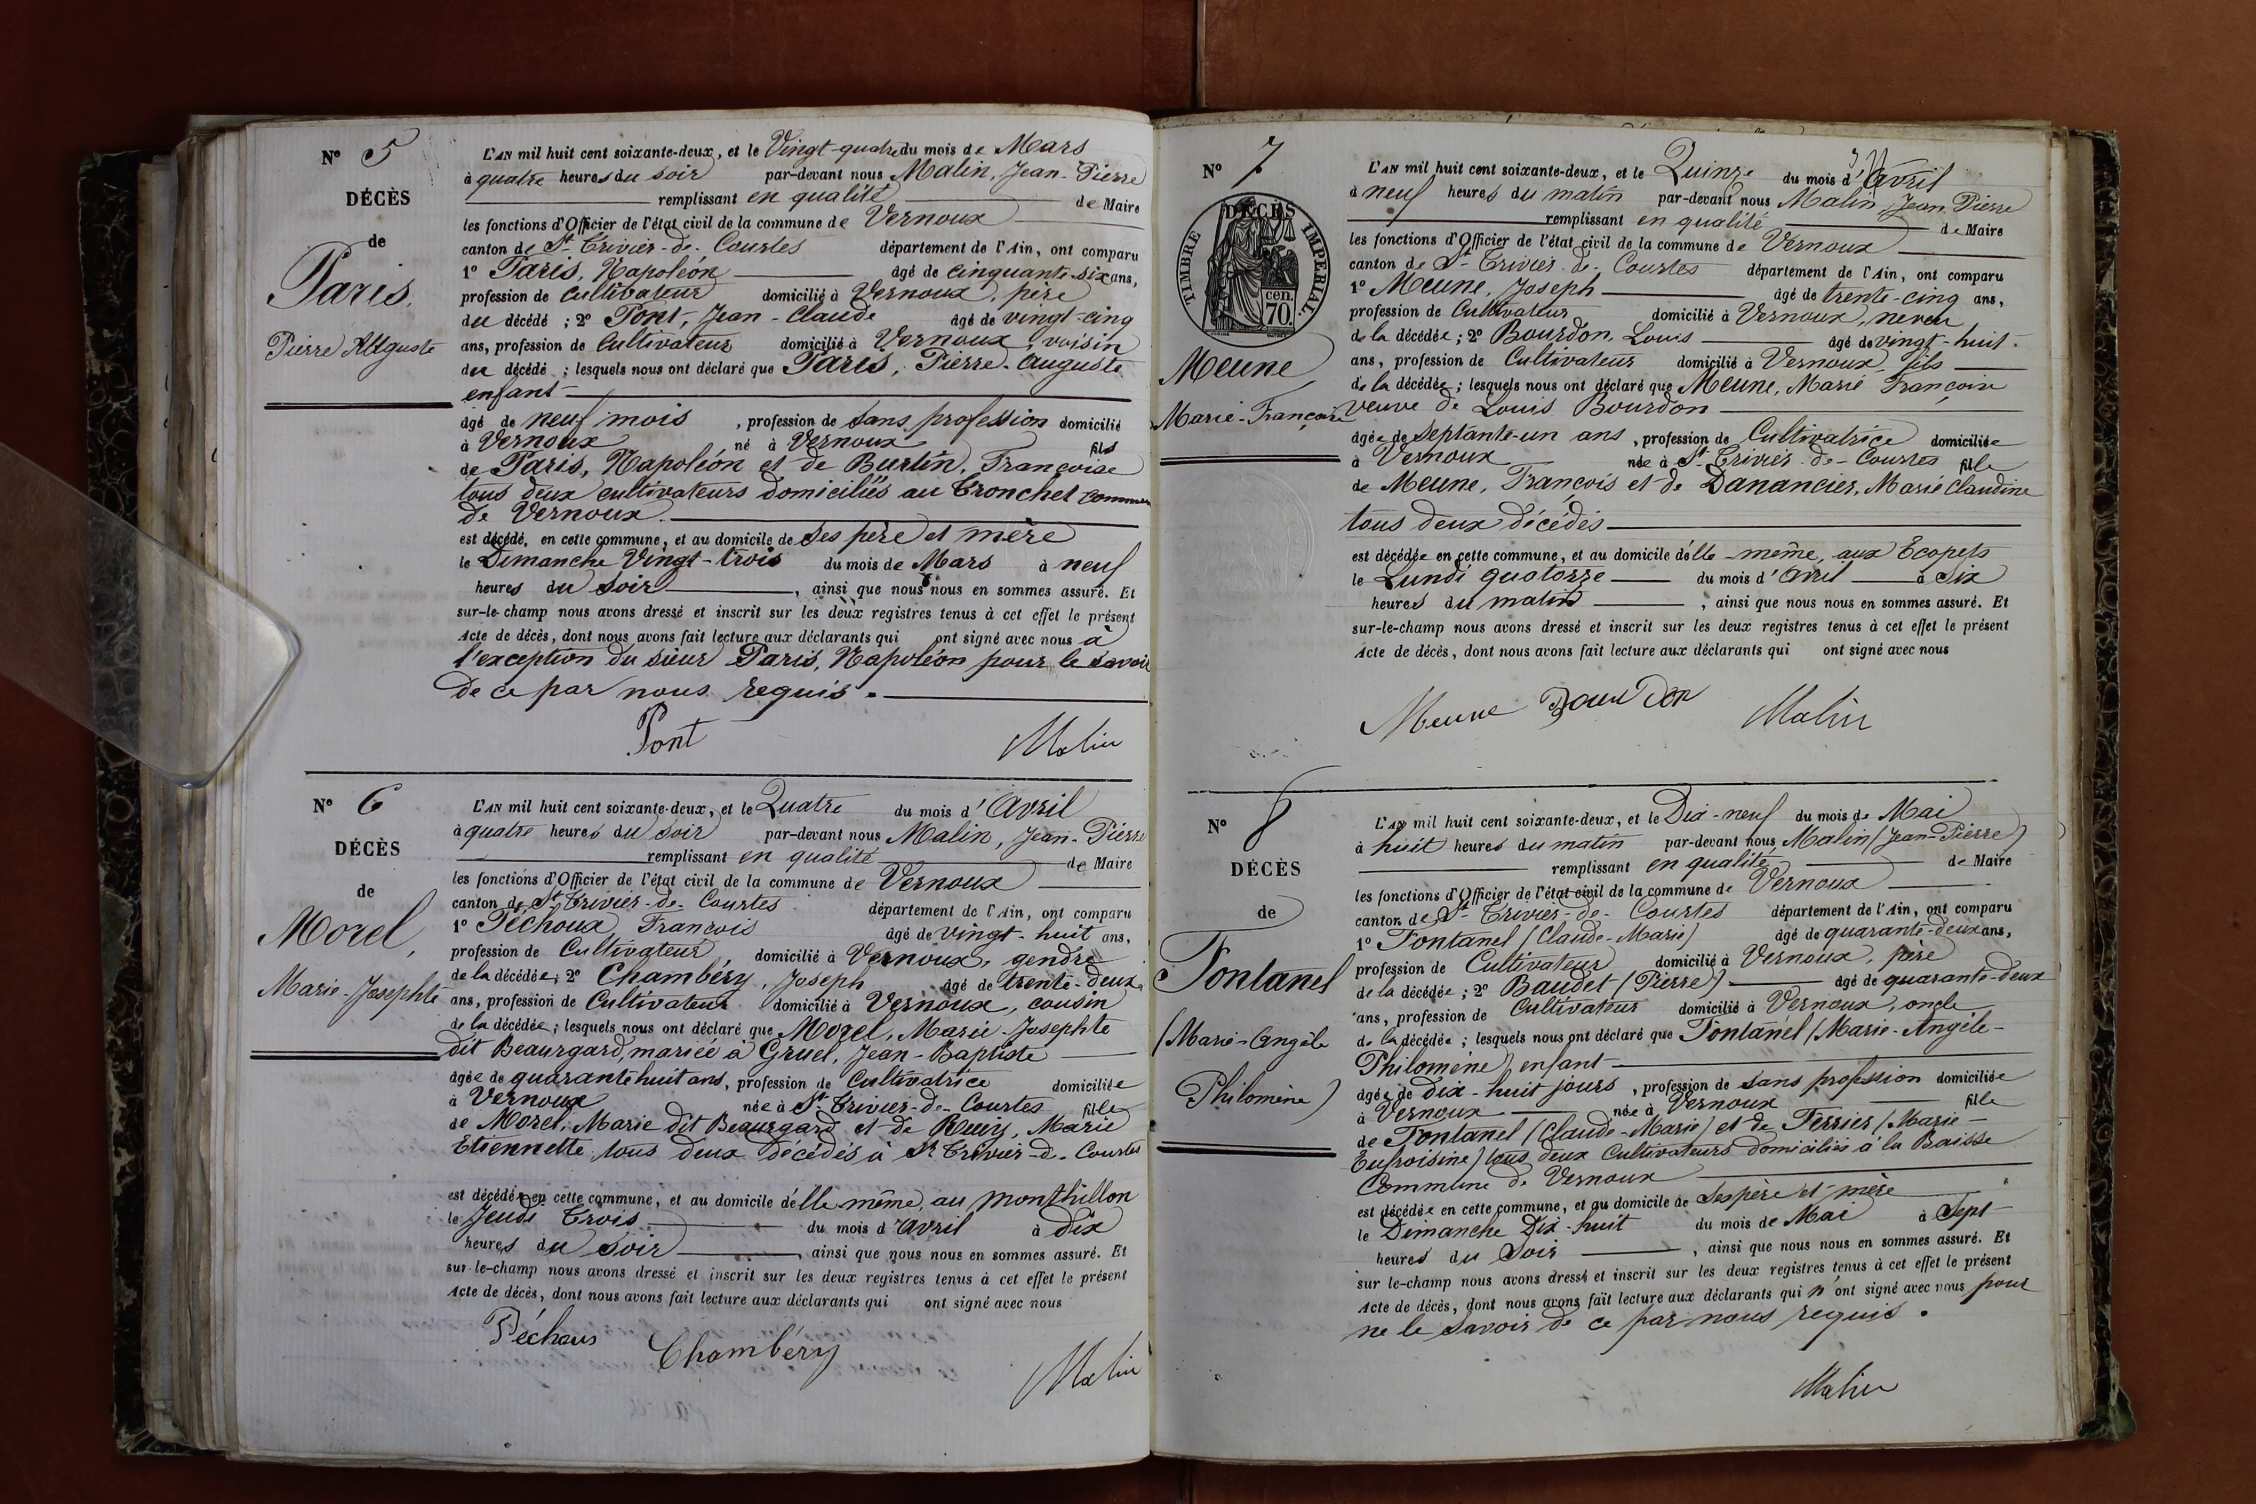 N° 5
DÉCÈS
de
Paris,
Pierre Auguste
L'AN mil huit cent soixante-deux, et le Vingt-quatre du mois de Mars
à quatre heures du soir par-devant nous Malin, Jean-Pierre
remplissant en qualité de Maire
les fonctions d'Officier de l'état civil de la commune de Vernoux
canton de St Trivier-de-Courtes département de l'Ain, ont comparu
1° Paris, Napoléon âgé de cinquante-six ans,
profession de Cultivateur domicilié à Vernoux, père
du décédé ; 2° Pont, Jean-Claude âgé de vingt-cinq
ans, profession de Cultivateur domicilié à Vernoux, voisin
du décédé ; lesquels nous ont déclaré que Paris, Pierre-Auguste
enfant
âgé de neuf mois , profession de sans profession domicilié
à Vernoux né à Vernoux fils
de Paris, Napoléon et de Burtin, Françoise
tous deux cultivateurs domiciliés au Tronchet commune
de Vernoux.
est décédé, en cette commune, et au domicile de ses père et mère
le Dimanche Vingt-trois du mois de Mars à neuf
heures du soir , ainsi que nous nous en sommes assuré. Et
sur-le-champ nous avons dressé et inscrit sur les deux registres tenus à cet effet le présent
Acte de décès, dont nous avons fait lecture aux déclarants qui ont signé avec nous à
l'exception du sieur Paris, Napoléon pour le savoir
de ce par nous requis.
Pont Malin
N° 6
DÉCÈS
de
Morel,
Marie-Josephte
L'AN mil huit cent soixante-deux, et le Quatre du mois d'Avril
à quatre heures du soir par-devant nous Malin, Jean-Pierre
remplissant en qualité de Maire
les fonctions d'Officier de l'état civil de la commune de Vernoux
canton de St Trivier-de-Courtes département de l'Ain, ont comparu
1° Péchoux, François âgé de vingt-huit ans,
profession de Cultivateur domicilié à Vernoux, gendre
de la décédée ; 2° Chambéry, Joseph âgé de trente-deux
ans, profession de Cultivateur domicilié à Vernoux, cousin
de la décédée ; lesquels nous ont déclaré que Morel, Marie-Josephte
dit Beauregard, mariée à Gruel, Jean-Baptiste
âgée de quarante huit ans, profession de Cultivatrice domiciliée
à Vernoux née à St Trivier-de-Courtes fille
de Morel, Marie dit Beauregard et de Marie
Etiennette, tous deux décédés à St Trivier-de-Courtes
est décédée en cette commune, et au domicile d'elle même, au Monthillon
le Jeudi Trois du mois d'Avril à dix
heures du soir , ainsi que nous nous en sommes assuré. Et
sur-le-champ nous avons dressé et inscrit sur les deux registres tenus à cet effet le présent
Acte de décès, dont nous avons fait lecture aux déclarants qui ont signé avec nous
Péchoux Chambéry Malin
N° 7
DÉCÈS
TIMBRE IMPÉRIAL.
cen.
70.
Meune
Marie-Françoise
L'AN mil huit cent soixante-deux, et le Quinze du mois d'Avril
à neuf heures du matin par-devant nous Malin, Jean Pierre
remplissant en qualité de Maire
les fonctions d'Officier de l'état civil de la commune de Vernoux
canton de St Trivier-de-Courtes département de l'Ain, ont comparu
1° Meune, Joseph âgé de trente-cinq ans,
profession de Cultivateur domicilié à Vernoux, neveu
de la décédée ; 2° Bourdon, Louis âgé de vingt-huit
ans, profession de Cultivateur domicilié à Vernoux, fils
de la décédée ; lesquels nous ont déclaré que Meune, Marie Françoise
veuve de Louis Bourdon
âgée de septante-un ans, profession de Cultivatrice domiciliée
à Vernoux née à St Trivier-de-Courtes fille
de Meune, François et de Danancier, Marie Claudine
tous deux décédés
est décédée en cette commune, et au domicile d'elle-même, aux Ecopets
le Lundi quatorze du mois d'Avril à Six
heures du matin , ainsi que nous nous en sommes assuré. Et
sur-le-champ nous avons dressé et inscrit sur les deux registres tenus à cet effet le présent
Acte de décès, dont nous avons fait lecture aux déclarants qui ont signé avec nous
Meune Bourdon Malin
N° 8
DÉCÈS
de
Fontanel
(Marie-Angèle
Philomène)
L'AN mil huit cent soixante-deux, et le Dix-neuf du mois de Mai
à huit heures du matin par-devant nous Malin (Jean-Pierre)
remplissant en qualité de Maire
les fonctions d'Officier de l'état civil de la commune de Vernoux
canton de St Trivier-de-Courtes département de l'Ain, ont comparu
1° Fontanel (Claude-Marie) âgé de quarante-deux ans,
profession de Cultivateur domicilié à Vernoux, père
de la décédée ; 2° Baudet (Pierre) âgé de quarante-deux
ans, profession de Cultivateur domicilié à Vernoux, oncle
de la décédée ; lesquels nous ont déclaré que Fontanel (Marie-Angèle-
Philomène) enfant
âgée de dix-huit jours, profession de sans profession domiciliée
à Vernoux née à Vernoux fille
de Fontanel (Claude-Marie) et de Ferrier (Marie-
Eufroisine) tous deux Cultivateurs domiciliés à la Baisse
Commune de Vernoux
est décédée en cette commune, et au domicile de ses père et mère
le Dimanche Dix-huit du mois de Mai à Sept
heures du Soir , ainsi que nous nous en sommes assuré. Et
sur le-champ nous avons dressé et inscrit sur les deux registres tenus à cet effet le présent
Acte de décès, dont nous avons fait lecture aux déclarants qui n'ont signé avec nous pour
ne le savoir de ce par nous requis.
Malin